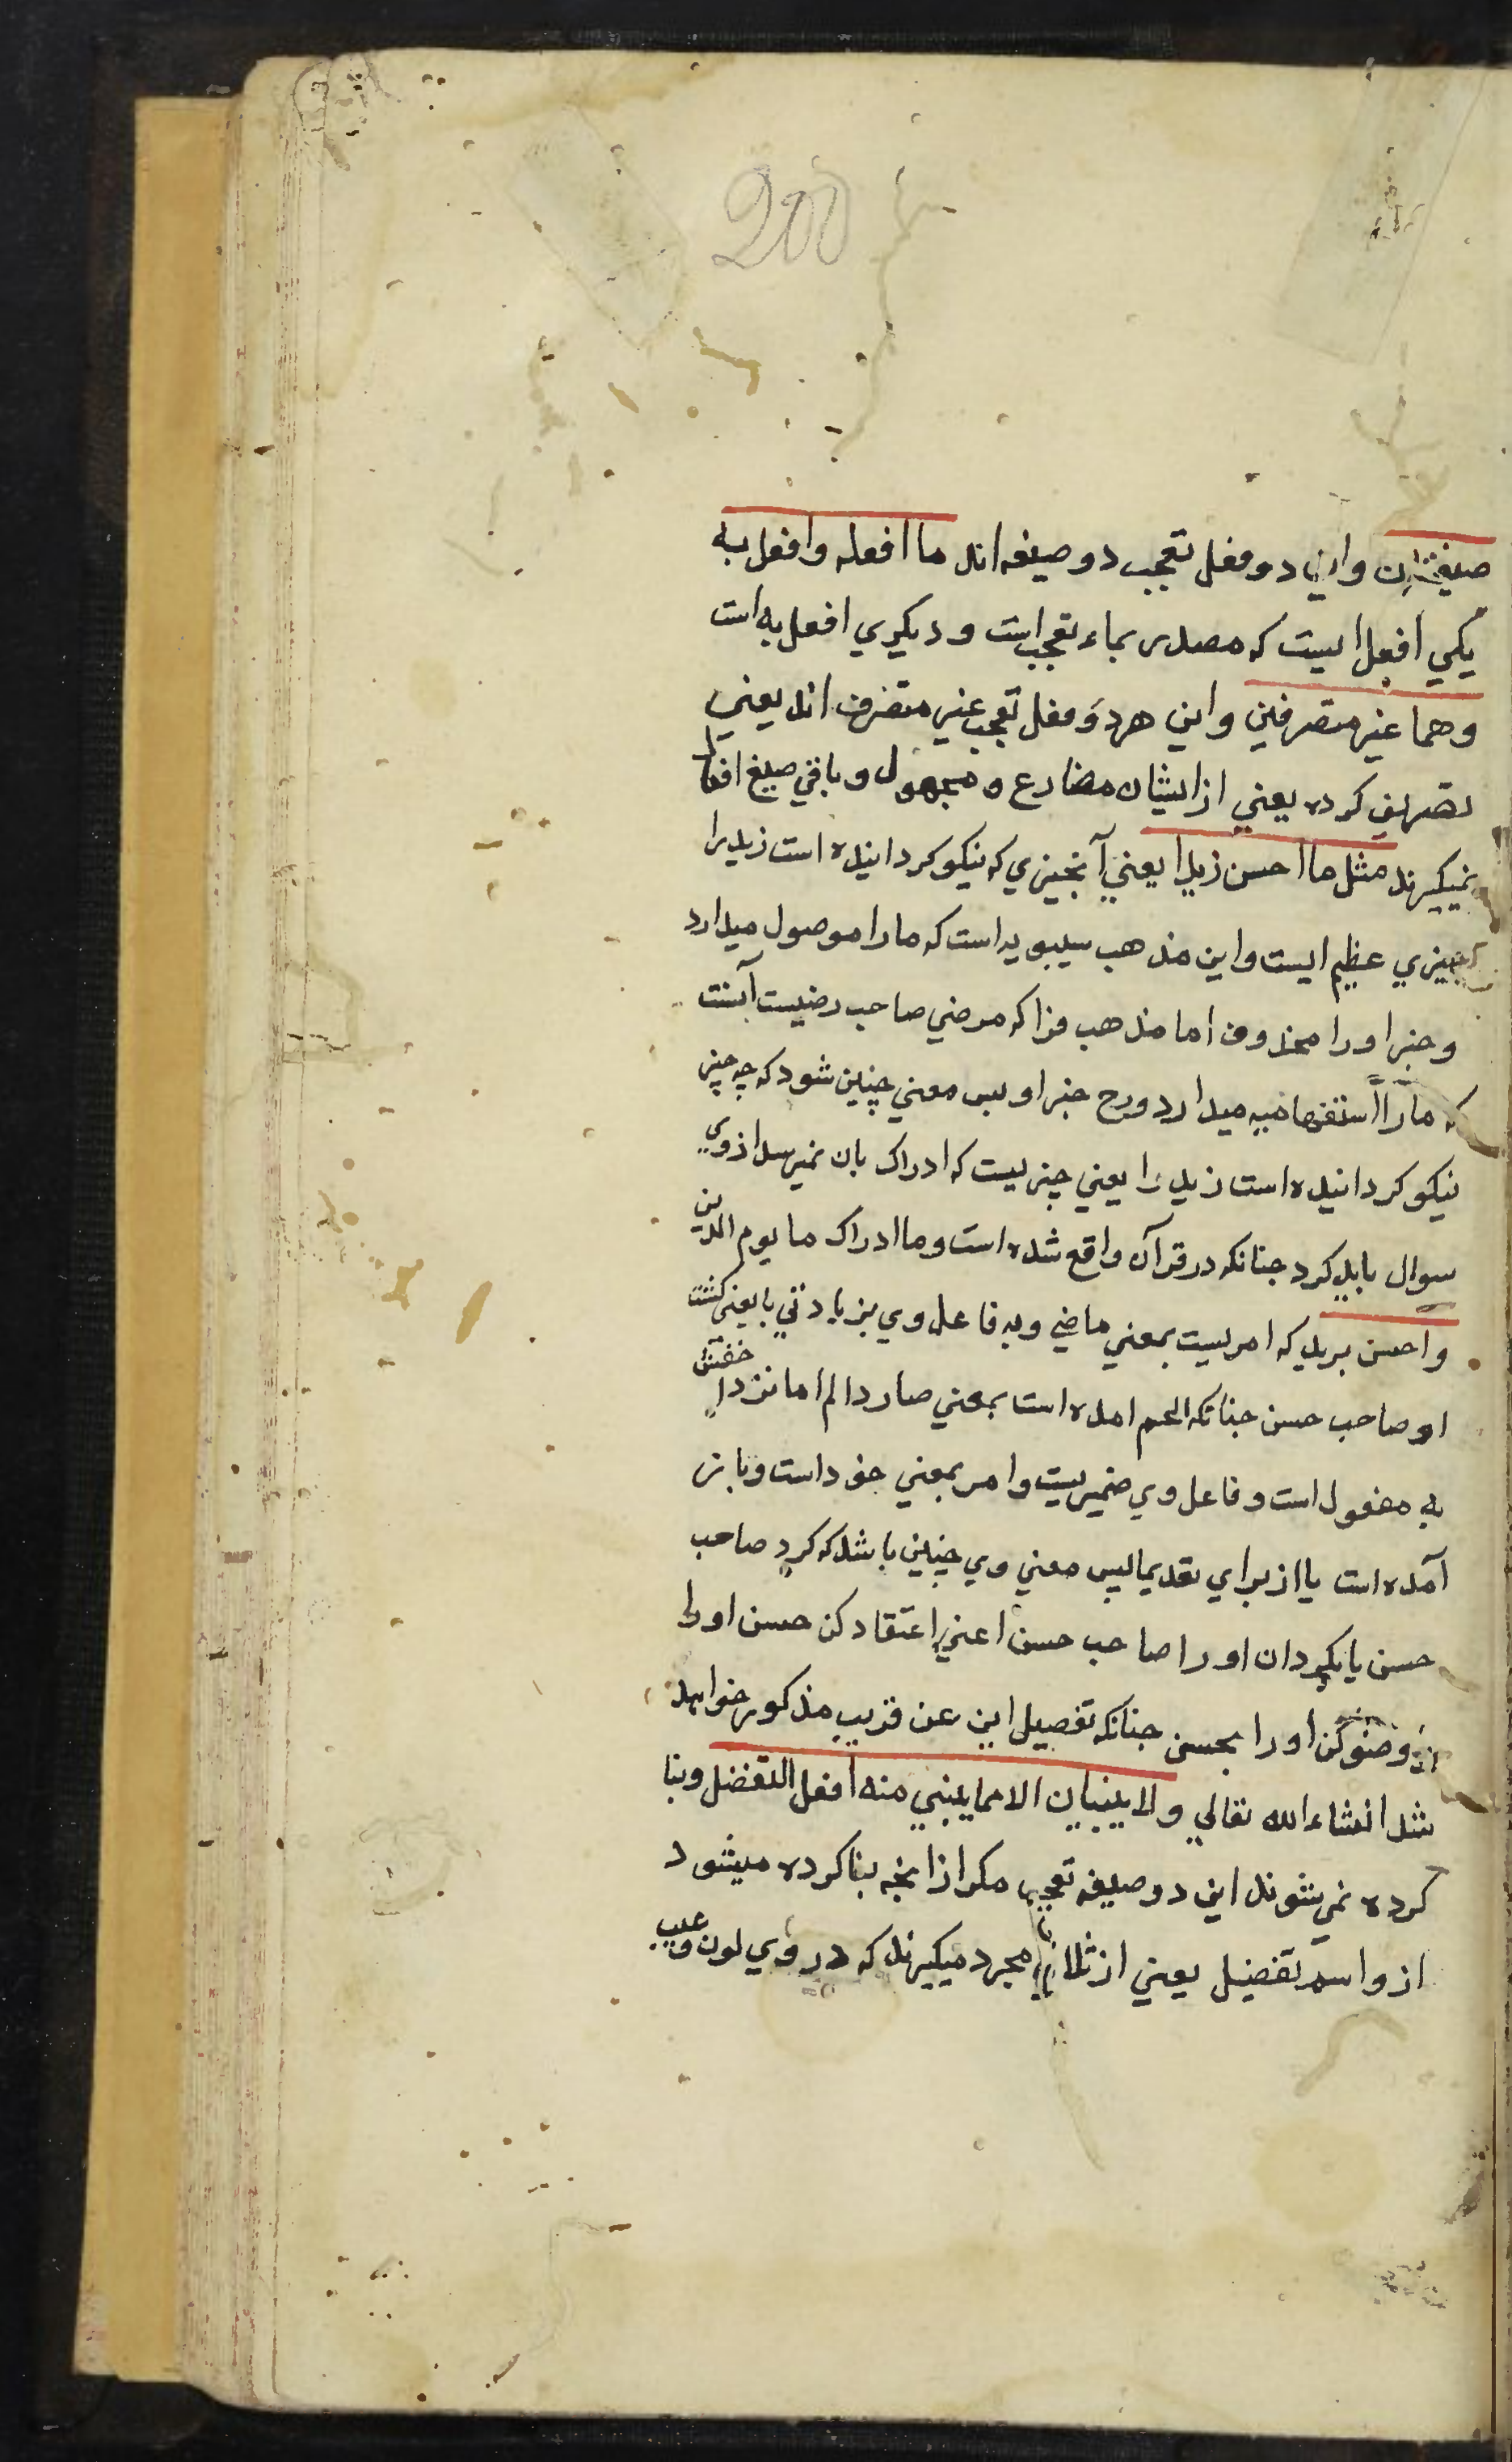 200
صیغتان واین دو فعل تعجب دو صیغه اند ما افعله وافعل به
یکی افعل ایست که مصدر بماء تعجب است و دیکری افعل به است
وهما غیر متصرفین واین هر دو فعل تعجب غیر متصرف اند یعنی
تصریف کرده یعنی از ایشان مضارع و مجهول و باقی صیغ افعال
نمیکیرند مثل ما احسن زیدا یعنی آنچیزی که نیکو کردانیده است زید را
چیزی عظیم ایست واین مذهب سیبویه است که ما را موصول میدارد
وخبر او را محذوف اما مذهب فرا که مرضی صاحب رضیست آنست
که ما را استفهامیه میدارد ورح خبر او پس معنی چنین شود که چه چیز
نیکو کردانیده است زید را یعنی چیزیست که ادراک بان نمیرسد از وی
سوال باید کرد چنانکه در قرآن واقع شده است وما ادراک ما یوم الدین
واحسن بزید که امریست بمعنی ماضی و به فاعل وی بزیادتی با یعنی کشت
او صاحب حسن چنانکه الحم امده است بمعنی صار ذا لم اما نزد اخفش
به مفعول است وفاعل وی ضمیریست وامر بمعنی خود است وبا زن
آمده است یا از برای تعدیه پس معنی وی چنین باشد که کرد صاحب
حسن یا بکردان او را صاحب حسن اعنی اعتقاد کن حسن او را
وصف کن او را بحسن چنانکه تفصیل این عن قریب مذکور خواهد
شد انشاء الله تعالی ولا یبنیان الا مما یبنی منه افعل التفضل وبنا
کرده نمی شوند این دو صیغه تعجب مکر از انچه بنا کرده میشود
از و اسم تفضیل یعنی از ثلاثی مجرد میکیرند که در وی لون وعیب